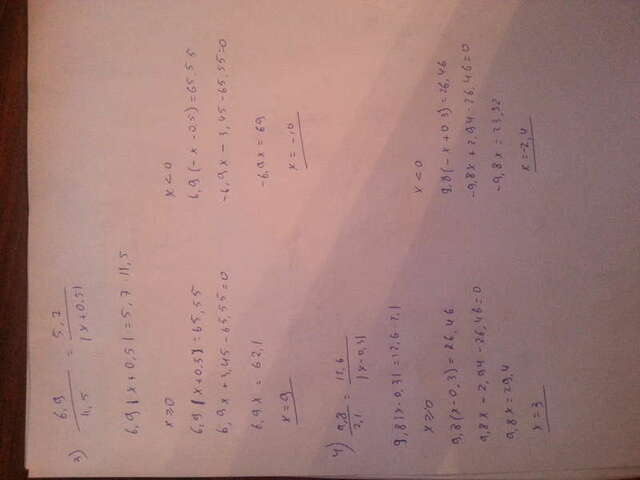 3) 6,9/11,5 = 5,7/|x+0,5|
6,9|x+0,5|=5,7·11,5
x≥0
6,9|x+0,5|=65,55
6,9x+3,45-65,55=0
6,9x=62,1
x=9
x<0
6,9(-x-0,5)=65,55
-6,9x-3,45-65,55=0
-6,9x=69
x=-10
4) 9,8/2,1 = 12,6/|x-0,3|
9,8|x-0,3|=12,6·2,1
x≥0
9,8(x-0,3)=26,46
9,8x-2,94-26,46=0
9,8x=29,4
x=3
x<0
9,8(-x+0,3)=26,46
-9,8x+2,94-26,46=0
-9,8x=23,52
x=-2,4